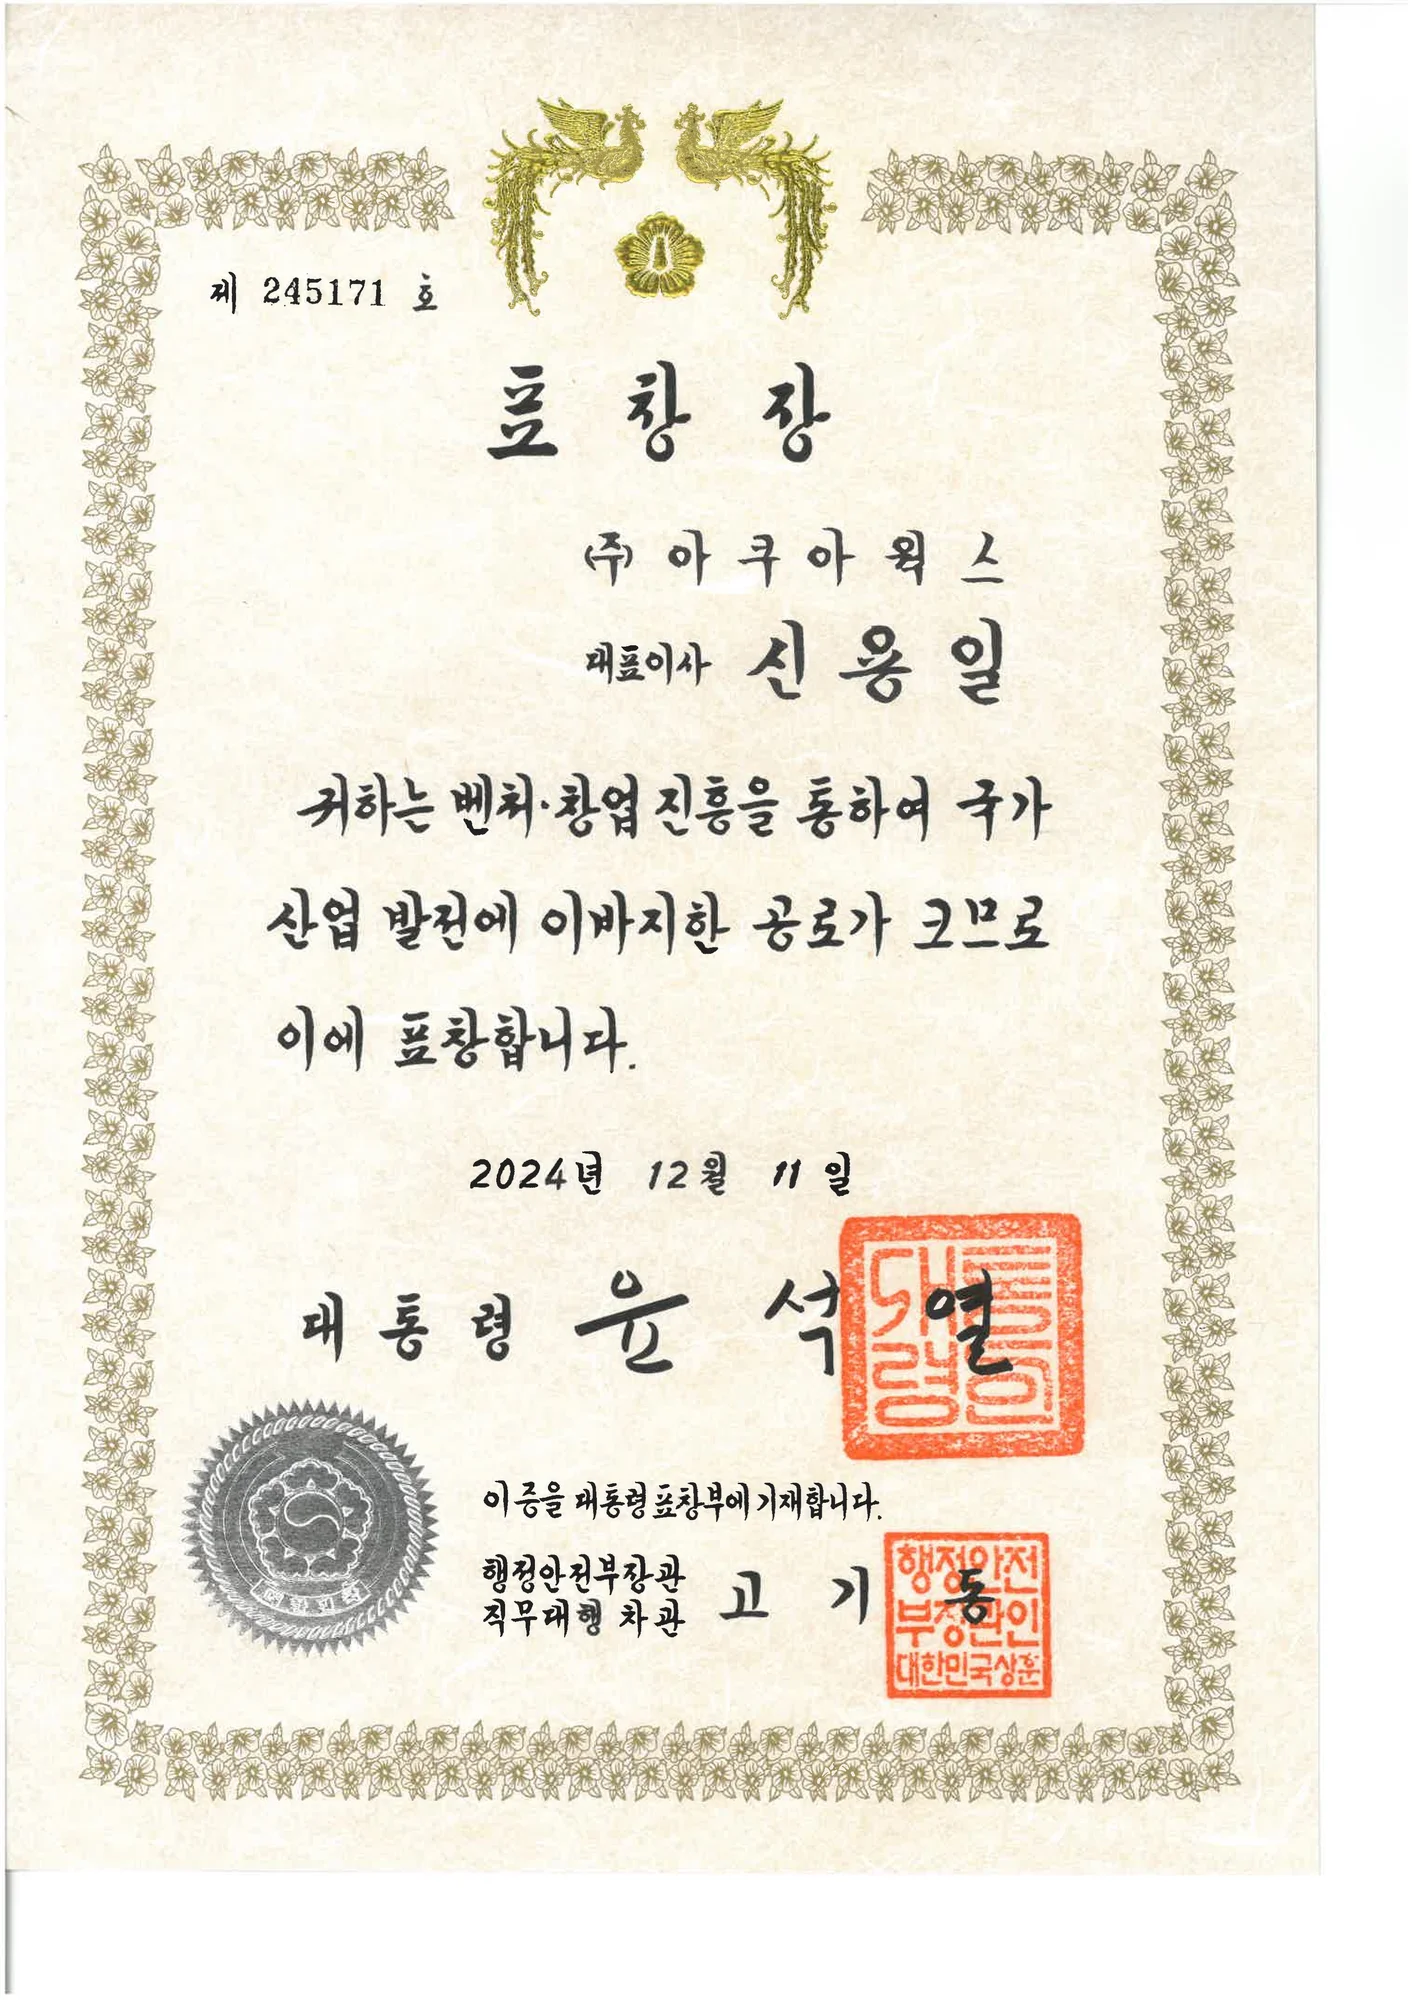 제 245171 호
표창장
(주)아쿠아웍스
대표이사 신용일
귀하는 벤처·창업 진흥을 통하여 국가
산업 발전에 이바지한 공로가 크므로
이에 표창합니다.
2024년 12월 11일
대통령 윤석열
대통
령인
이 증을 대통령표창부에 기재합니다.
행정안전부장관
직무대행 차관 고기동
행정안전
부장관인
대한민국상훈
대한민국